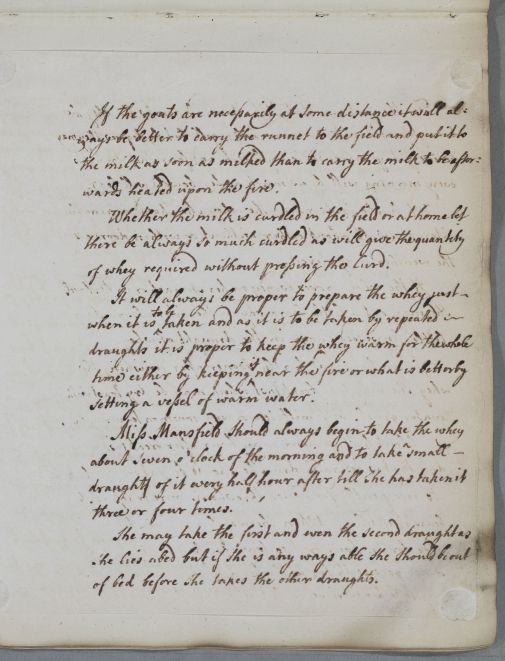 If the goats are necessarily at some distance it will al:
ways be better to carry the runnet to the field and put it to
the milk as soon as milked than to carry the milk to be after:
wards heated upon the fire.
Whether the milk is curdled in the field or at home let
there be always so much curdled as will give the quantity
of whey required without pressing the Curd.
It will always be proper to prepare the whey just
when it is to be taken and as it is to be taken by repeated
draughts it is proper to keep the whey warm for the whole
time either by keeping it near the fire or what is better by
setting a vessel of warm water.
Miss Mansfield should always begin to take the whey
about seven o'clock of the morning and to take a small
draught of it every half hour after till she has taken it
three or four times.
She may take the first and even the second draught as
she lies abed but if she is any ways able she should be out
of bed before she takes the other draughts.